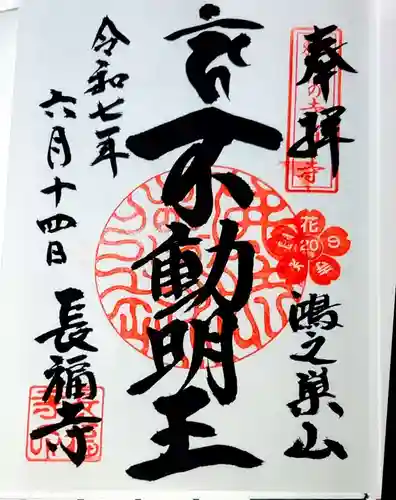 奉拝
鴻之巣山
花
209
不動明王
令和七年
六月十四日
長福寺